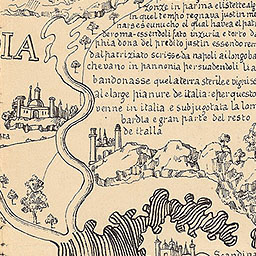 zonze in parma elistete al
in quel tempo regnava justin
nassese unucho el qual haveа el pat
de roma essendoli fato inxuria e torto d
phia dona del predito justin essendo rem
dal patriziato scrisse da napoli ai longoba
chevano in pannonia persuadendoli la
bandonasse quela terra sterile e digni se
al e large pianure de italia: e per questo
venne in italia e subjugotata la lom
bardia e gran parte del resto
de italia
IA
Scandina